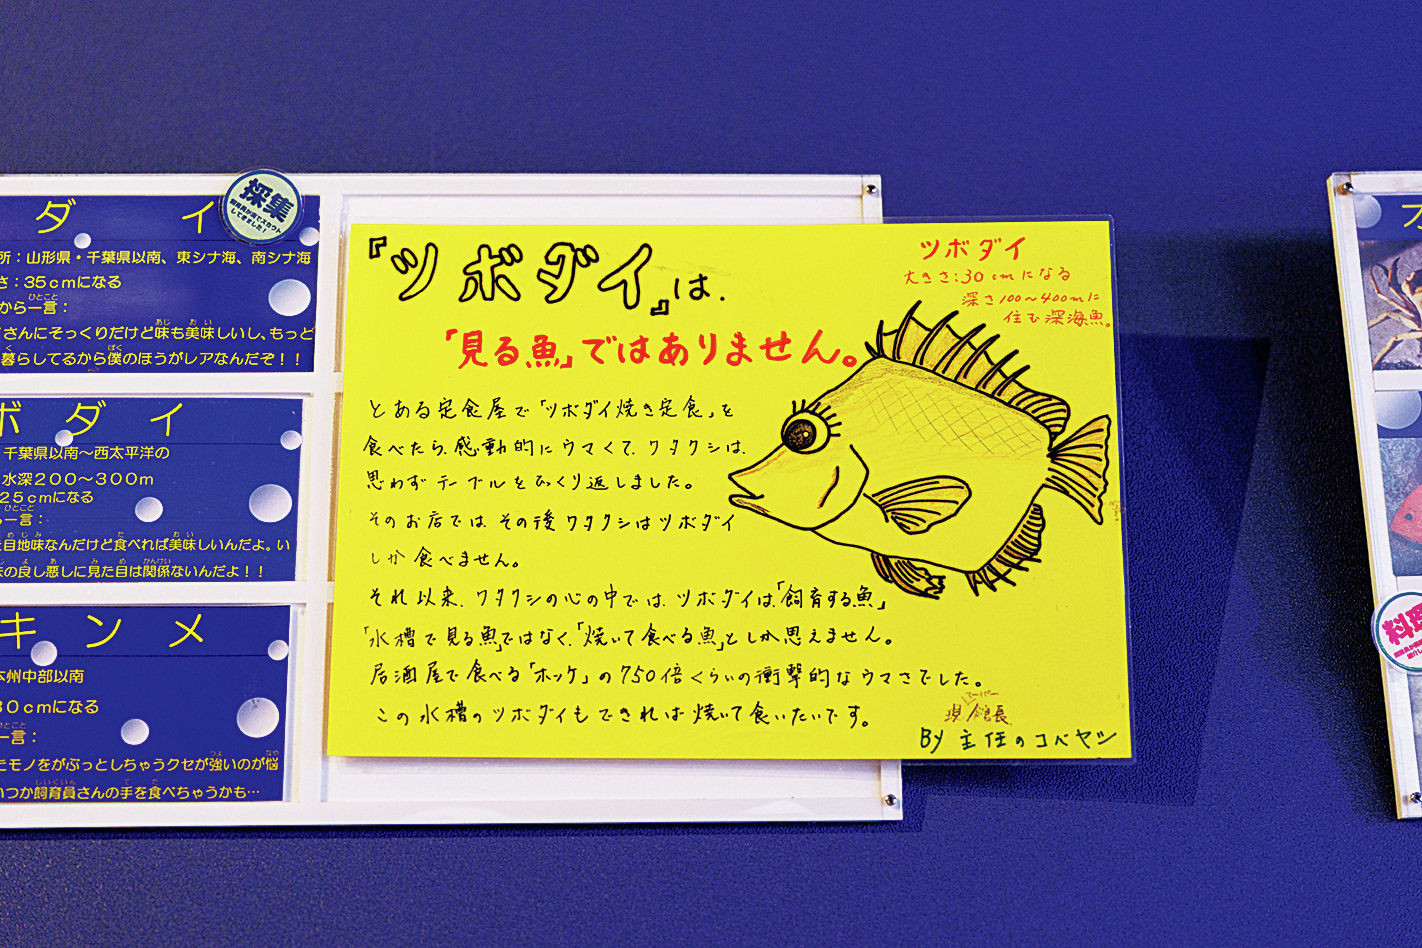 ダイ
採集
してきました！
所：山形県・千葉県以南、東シナ海、南シナ海
さ：35cmになる
から一言：
ひとこと
さんにそっくりだけど味も美味しいし、もっと
あじ お い
暮らしてるから僕のほうがレアなんだぞ！！
く ぼく
ボダイ
千葉県以南～西太平洋の
水深200～300m
25cmになる
一言：
ひとこと
目地味なんだけど食べれば美味しいんだよ。い
め じ み た お い
味の良し悪しに見た目は関係ないんだよ！！
じ よ あ み め かんけい
キンメ
本州中部以南
30cmになる
一言：
ひとこと
モノをがぶっとしちゃうクセが強いのが悩
つよ なや
いつか飼育員さんの手を食べちゃうかも…
しいくいん て た
『ツボダイ』は、
「見る魚」ではありません。
ツボダイ
大きさ：30cmになる
深さ100～400mに
住む深海魚。
とある定食屋で「ツボダイ焼き定食」を
食べたら、感動的にウマくて、ワタクシは、
思わずテーブルをひっくり返しました。
そのお店では、その後ワタクシはツボダイ
しか食べません。
それ以来、ワタクシの心の中では、ツボダイは、「飼育する魚」
「水槽で見る魚」ではなく、「焼いて食べる魚」としか思えません。
居酒屋で食べる「ホッケ」の750倍くらいの衝撃的なウマさでした。
この水槽のツボダイもできれば焼いて食いたいです。
現館長
スーパー
By 主任のコバヤシ
オ
料理